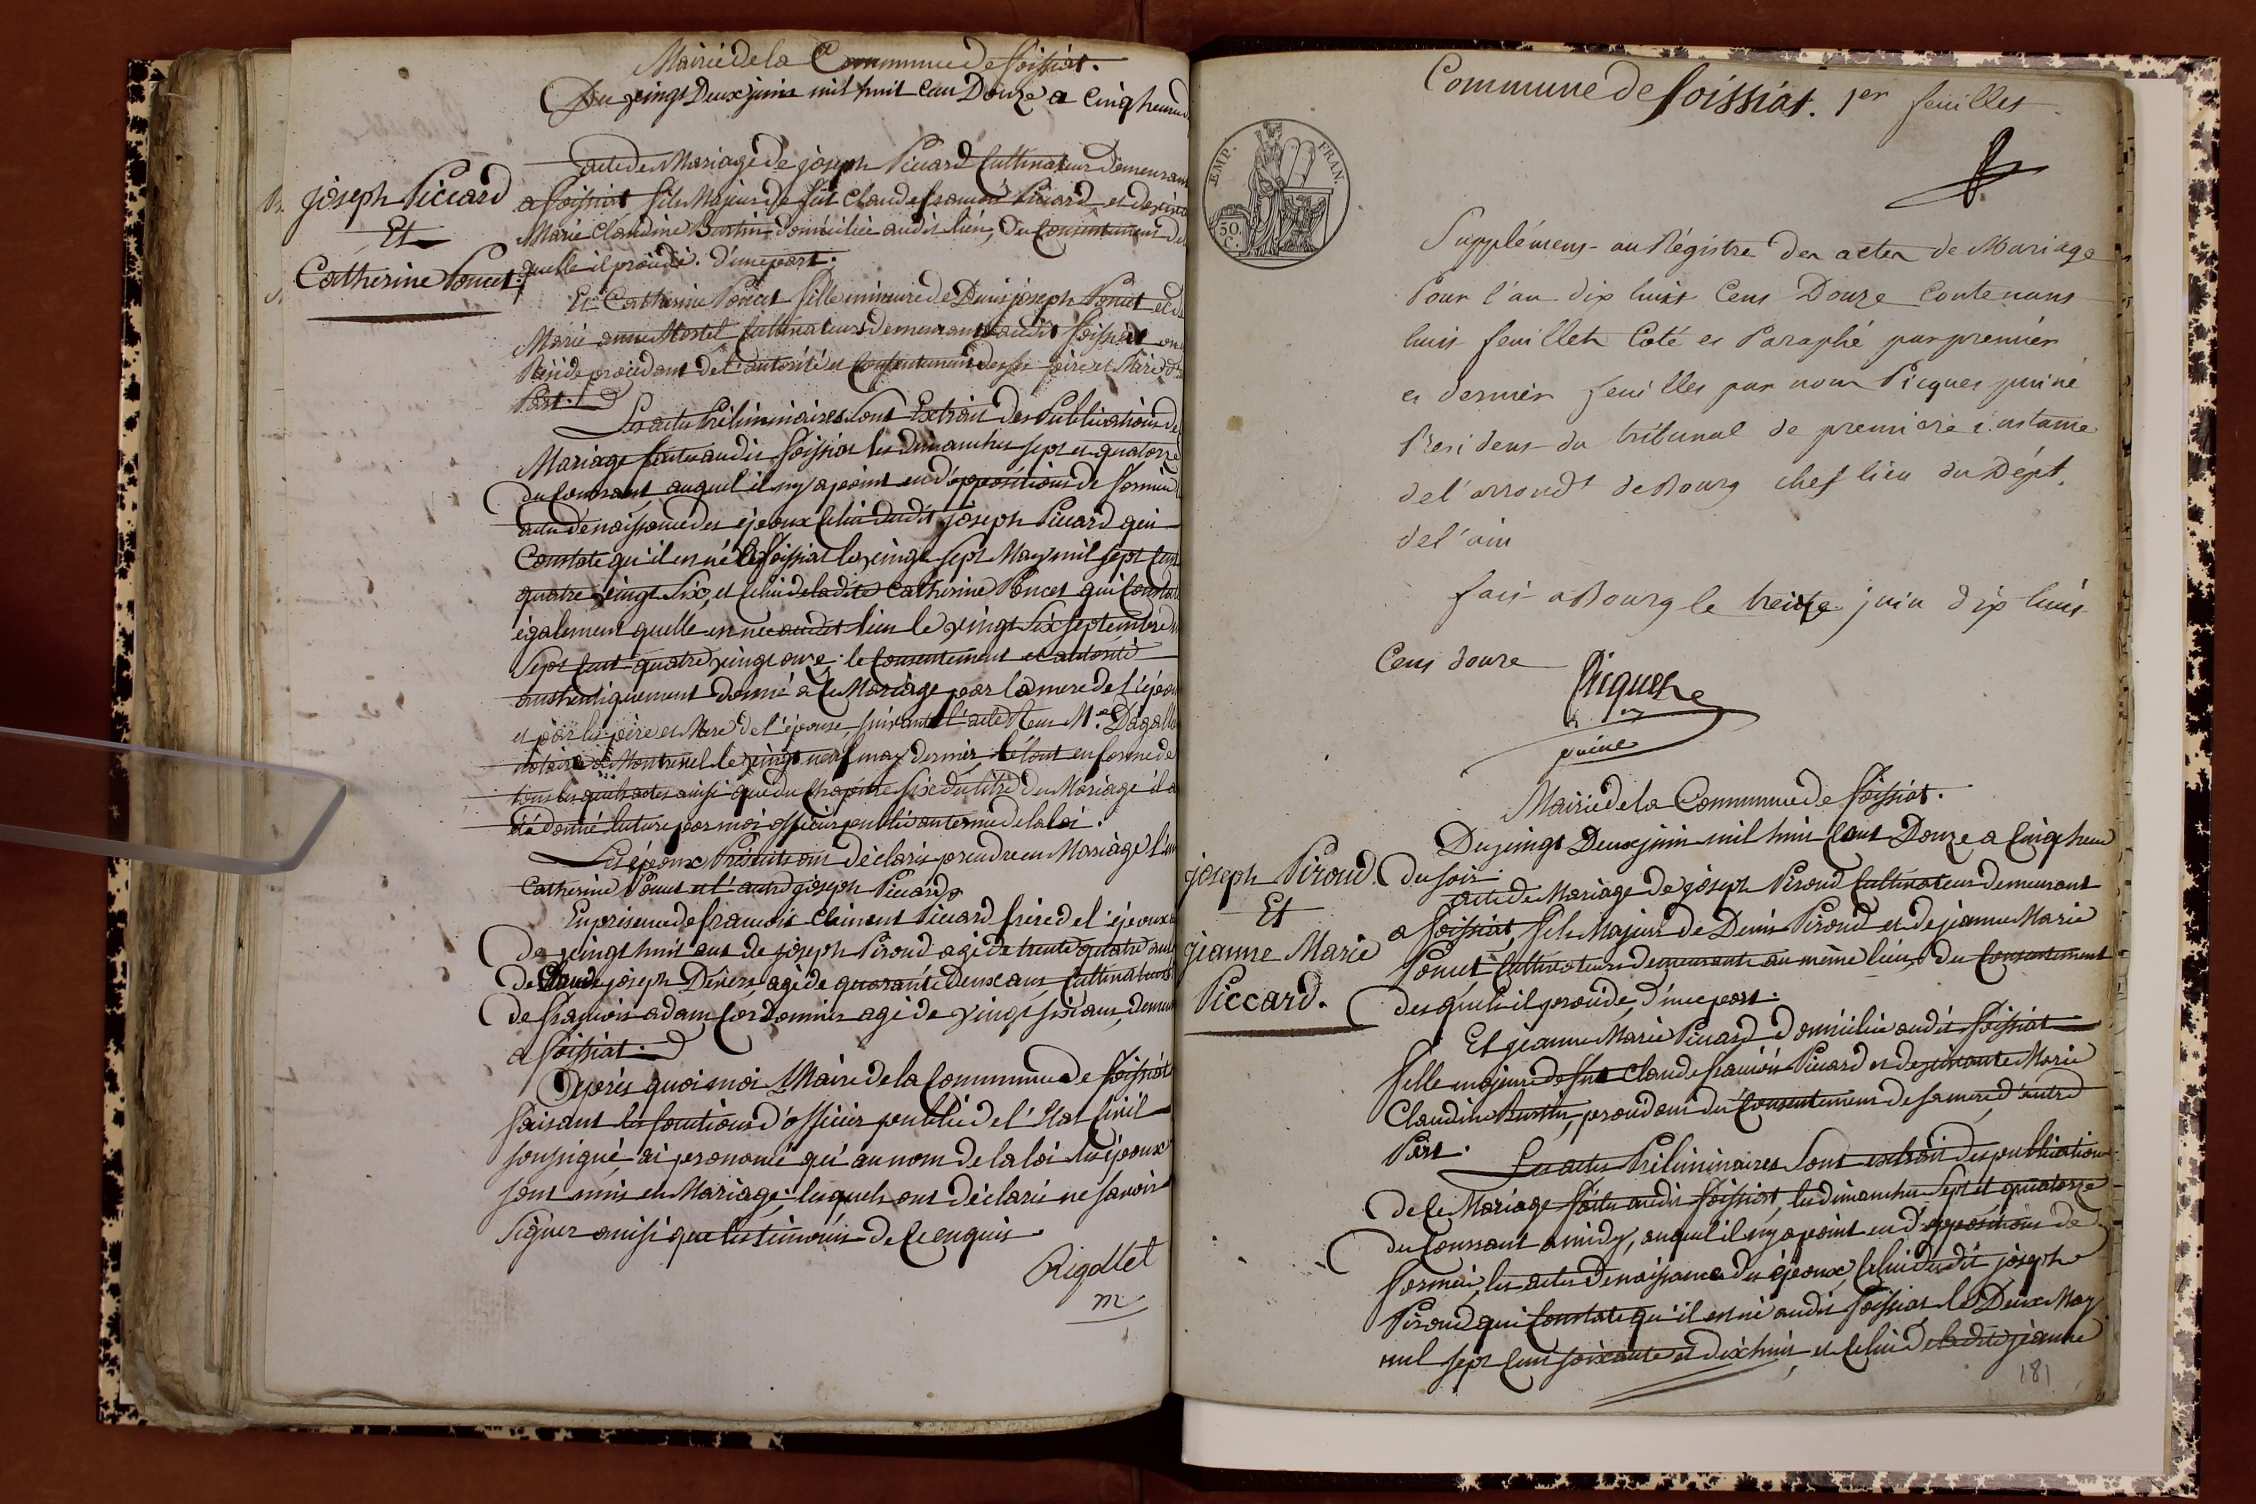 Mairie de la Commune de Foissiat.
Du vingt Deux juin mil huit Cent Douze a Cinq heures
acte de Mariage de joseph Piccard Cultivateur demeurant
joseph Piccard
Et
Catherine Poncet
a Foissiat fils Majeur de fut Claude françois Piccard et de vivante
Marie Claudine Burtin domiciliée audit lieu, du Consentement de
quelle il procéde. d'une part.
Et Catherine Poncet fille mineure de Denis joseph Poncet et de
Marie anne Morel Cultivateurs demeurant audit Foissiat ou
Réside procédant de l'autorité et Consentement de ses père et Mère
Part.
Les actes Préliminaires sont Extrait des Publications de
Mariage faites audit Foissiat les dimanches sept et quatorze
du Courant, auquel il ny a point eu d'oppositions de formée
acte de naissance des époux Celui dudit joseph Piccard qui
Constate qu'il est né a Foissiat le vingt sept May mil sept Cent
quatre vingt Six, et Celui de ladite Catherine Poncet qui Constate
également quelle est née audit lieu le vingt Six septembre
sept Cent quatre vingt onze. le Consentement et autorité
authentiquement Donné a Ce Mariage par la mere de l'époux
et par les père et Mere de l'épouse, suivant l'acte Reçu Me Dagallier
notaire a Montrevel le vingt neuf may dernier, le tout en forme de
tous lesquels actes ainsi que du Chapitre Six du titre du Mariage il a
été donné lecture par moi officier public au terme de la loi.
Les époux Présents ont déclaré prendre en Mariage l'un
Catherine Poncet et l'autre joseph Piccard
En présence de françois Clément Piccard frère de l'époux
de vingt huit ans de joseph Piroud agé de trente quatre ans
de Claude joseph Devers, agé de quarante deux ans, Cultivateurs
de françois adam Cordonnier agé de vingt six ans, demeurant
a Foissiat.
Après quoi moi Maire de la Commune de Foissiat
faisant les fonctions d'officier public de l'Etat Civil
soussigné, ai prononcé qu'au nom de la loi les époux
sont unis en Mariage; lesquels ont déclaré ne savoir
signer ainsi que les témoins de Ce enquis.
Rigollet
m
Commune de Foissiat. 1er feuillet
EMP. FRAN.
50. C.
Supplément au Régistre des actes de Mariage
Pour l'an dix huit Cent Douze Contenant
huit feuillets Coté et Paraphé par premier
et dernier feuillet par nous Picquet puiné
Président du tribunal de première instance
de l'arrondt de Bourg chef lieu du Dépt.
de l'ain
fait a Bourg le treize juin dix huit
Cent douze
Picquet
puiné
Mairie de la Commune de Foissiat.
Du vingt Deux juin mil huit Cent Douze a Cinq heures
du soir.
joseph Piroud.
Et
jeanne Marie
Piccard.
acte de Mariage de joseph Piroud Cultivateur demeurant
a Foissiat, fils Majeur de Denis Piroud et de jeanne Marie
Poncet Cultivateurs demeurants au même lieu, du Consentement
desquels il procéde, d'une part.
Et jeanne Marie Piccard domiciliée audit Foissiat
fille majeure de fut Claude françois Piccard et de vivante Marie
Claudine Burtin, procédant du Consentement de sa mere, d'autre
Part.
Les actes Préliminaires sont extrait des publication
de Ce Mariage faites audit Foissiat, les dimanches sept et quatorze
du Courant a midy, auquel il ny a point eu d'oppositions de
formée, les actes de naissance des époux, Celui dudit joseph
Piroud qui Constate qu'il est né audit Foissiat le Deux May
mil sept Cent soixante et dix huit, et Celui de ladite jeanne
181